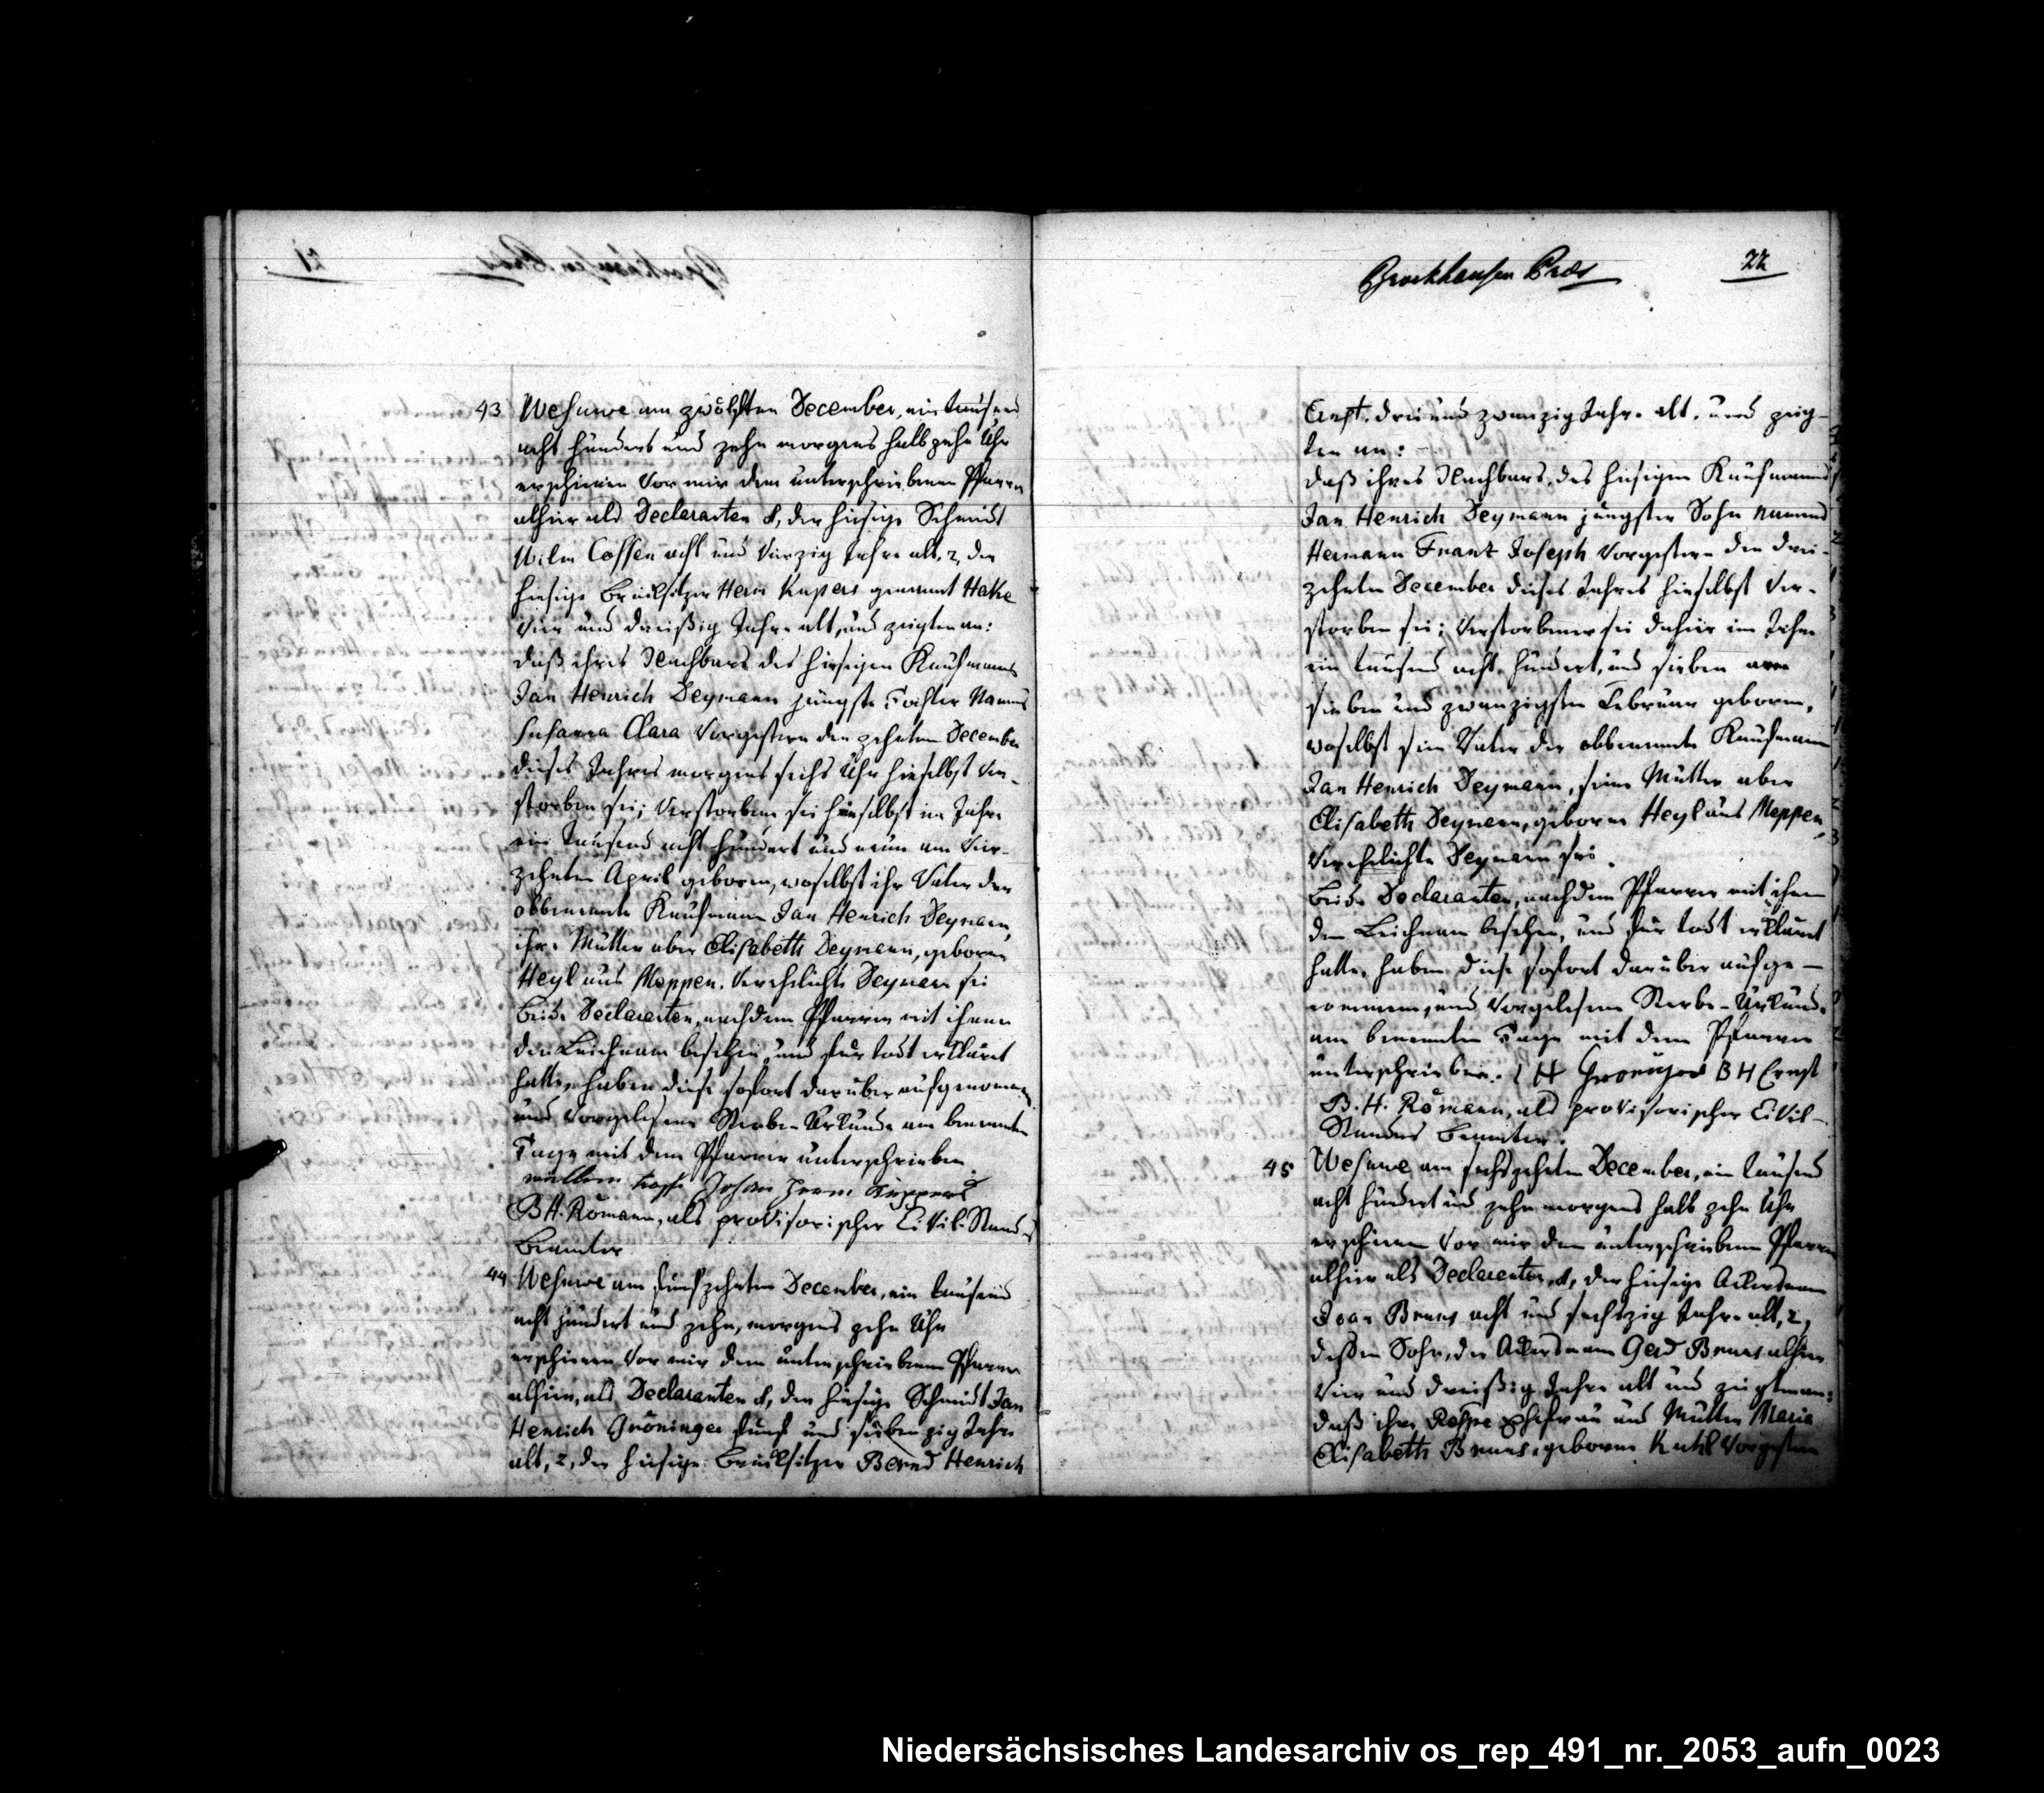 Brockhausen Präs 22
43 Wesuwe am zwölften December, ein tausend
acht hundert und zehn morgens halb zehn Uhr
erschienen vor mir dem unterschriebenen Pfarrer
alhier als Declaranten 1, der hiesige Schmidt
Wilm Cossen acht und vierzig Jahre alt, 2, der
hiesige Brinksitzer Herm Kupers genannt Hake
vier und dreißig Jahre alt, und zeigten an:
daß ihres Nachbars des hiesigen Kaufmanns
Jan Henrich Deymann jüngste Tochter Namens
Susanna Clara vorgestern den zehnten December
dieses Jahres morgens sechs Uhr hieselbst ver-
storben sei; Verstorbene sei hieselbst im Jahre
ein tausend acht hundert und neun am vier-
zehnten April geboren, woselbst ihr Vater der
obbenannte Kaufmann Jan Henrich Deymann,
ihre Mutter aber Elisabeth Deymann, geborne
Heyl aus Meppen, verehelichte Deymann sei
Beide Declaranten, nachdem Pfarrer mit ihnen
den Leichnam besehen, und für todt erkläret
hatte, haben diese sofort darüber aufgenommene
und vorgelesene Sterbe-Urkunde am benannten
Tage mit dem Pfarrer unterschrieben.
willem Johan Herm Küppers
BH. Römann, als provisorischer Civil-Stands-
Beamter
44 Wesuwe am fünfzehnten December, ein tausend
acht hundert und zehn, morgens zehn Uhr
erschienen vor mir dem unterschriebenen Pfarrer
alhier, als Declaranten 1, der hiesige Schmidt Jan
Henrich Gröninger fünf und siebenzig Jahre
alt, 2, der hiesige Brinksitzer Bernd Henrich
Ernst, drei und zwanzig Jahre alt, und zeig-
ten an:
daß ihres Nachbars, des hiesigen Kaufmanns
Jan Henrich Deymann jüngster Sohn Namens
Hermann Franz Joseph vorgestern den drei-
zehnten December dieses Jahres hieselbst ver-
storben sei; Verstorbener sei dahier im Jahre
ein tausend acht hundert, und sieben am
sieben und zwanzigsten Februar geboren,
woselbst sein Vater der obbenannte Kaufmann
Jan Henrich Deymann, seine Mutter aber
Elisabeth Deymann, geborne Heyl aus Meppen,
verehelichte Deymann sei.
Beide Declaranten, nachdem Pfarrer mit ihnen
den Leichnam besehen, und für todt erkläret
hatte, haben diese sofort darüber aufge-
nommene, und vorgelesene Sterbe-Urkunde
am benannten Tage mit dem Pfarrer
unterschrieben. H Groninger BH Ernst
B.H. Römann, als provisorischer Civil-
Standes Beamter.
45 Wesuwe am sechszehnten December, ein tausend
acht hundert und zehn morgens halb zehn Uhr
erschienen vor mir dem unterschriebenen Pfarrer
alhier als Declaranten, 1, der hiesige Ackersmann
Joan Bruns acht und sechszig Jahre alt, 2,
dessen Sohn, der Ackersmann Gerd Bruns alhier
vier und dreißig Jahre alt und zeigten an:
daß ihre Respe Ehefrau und Mutter Maria
Elisabeth Bruns, geborne Kuhl vorgestern
Niedersächsisches Landesarchiv os_rep_491_nr._2053_aufn_0023